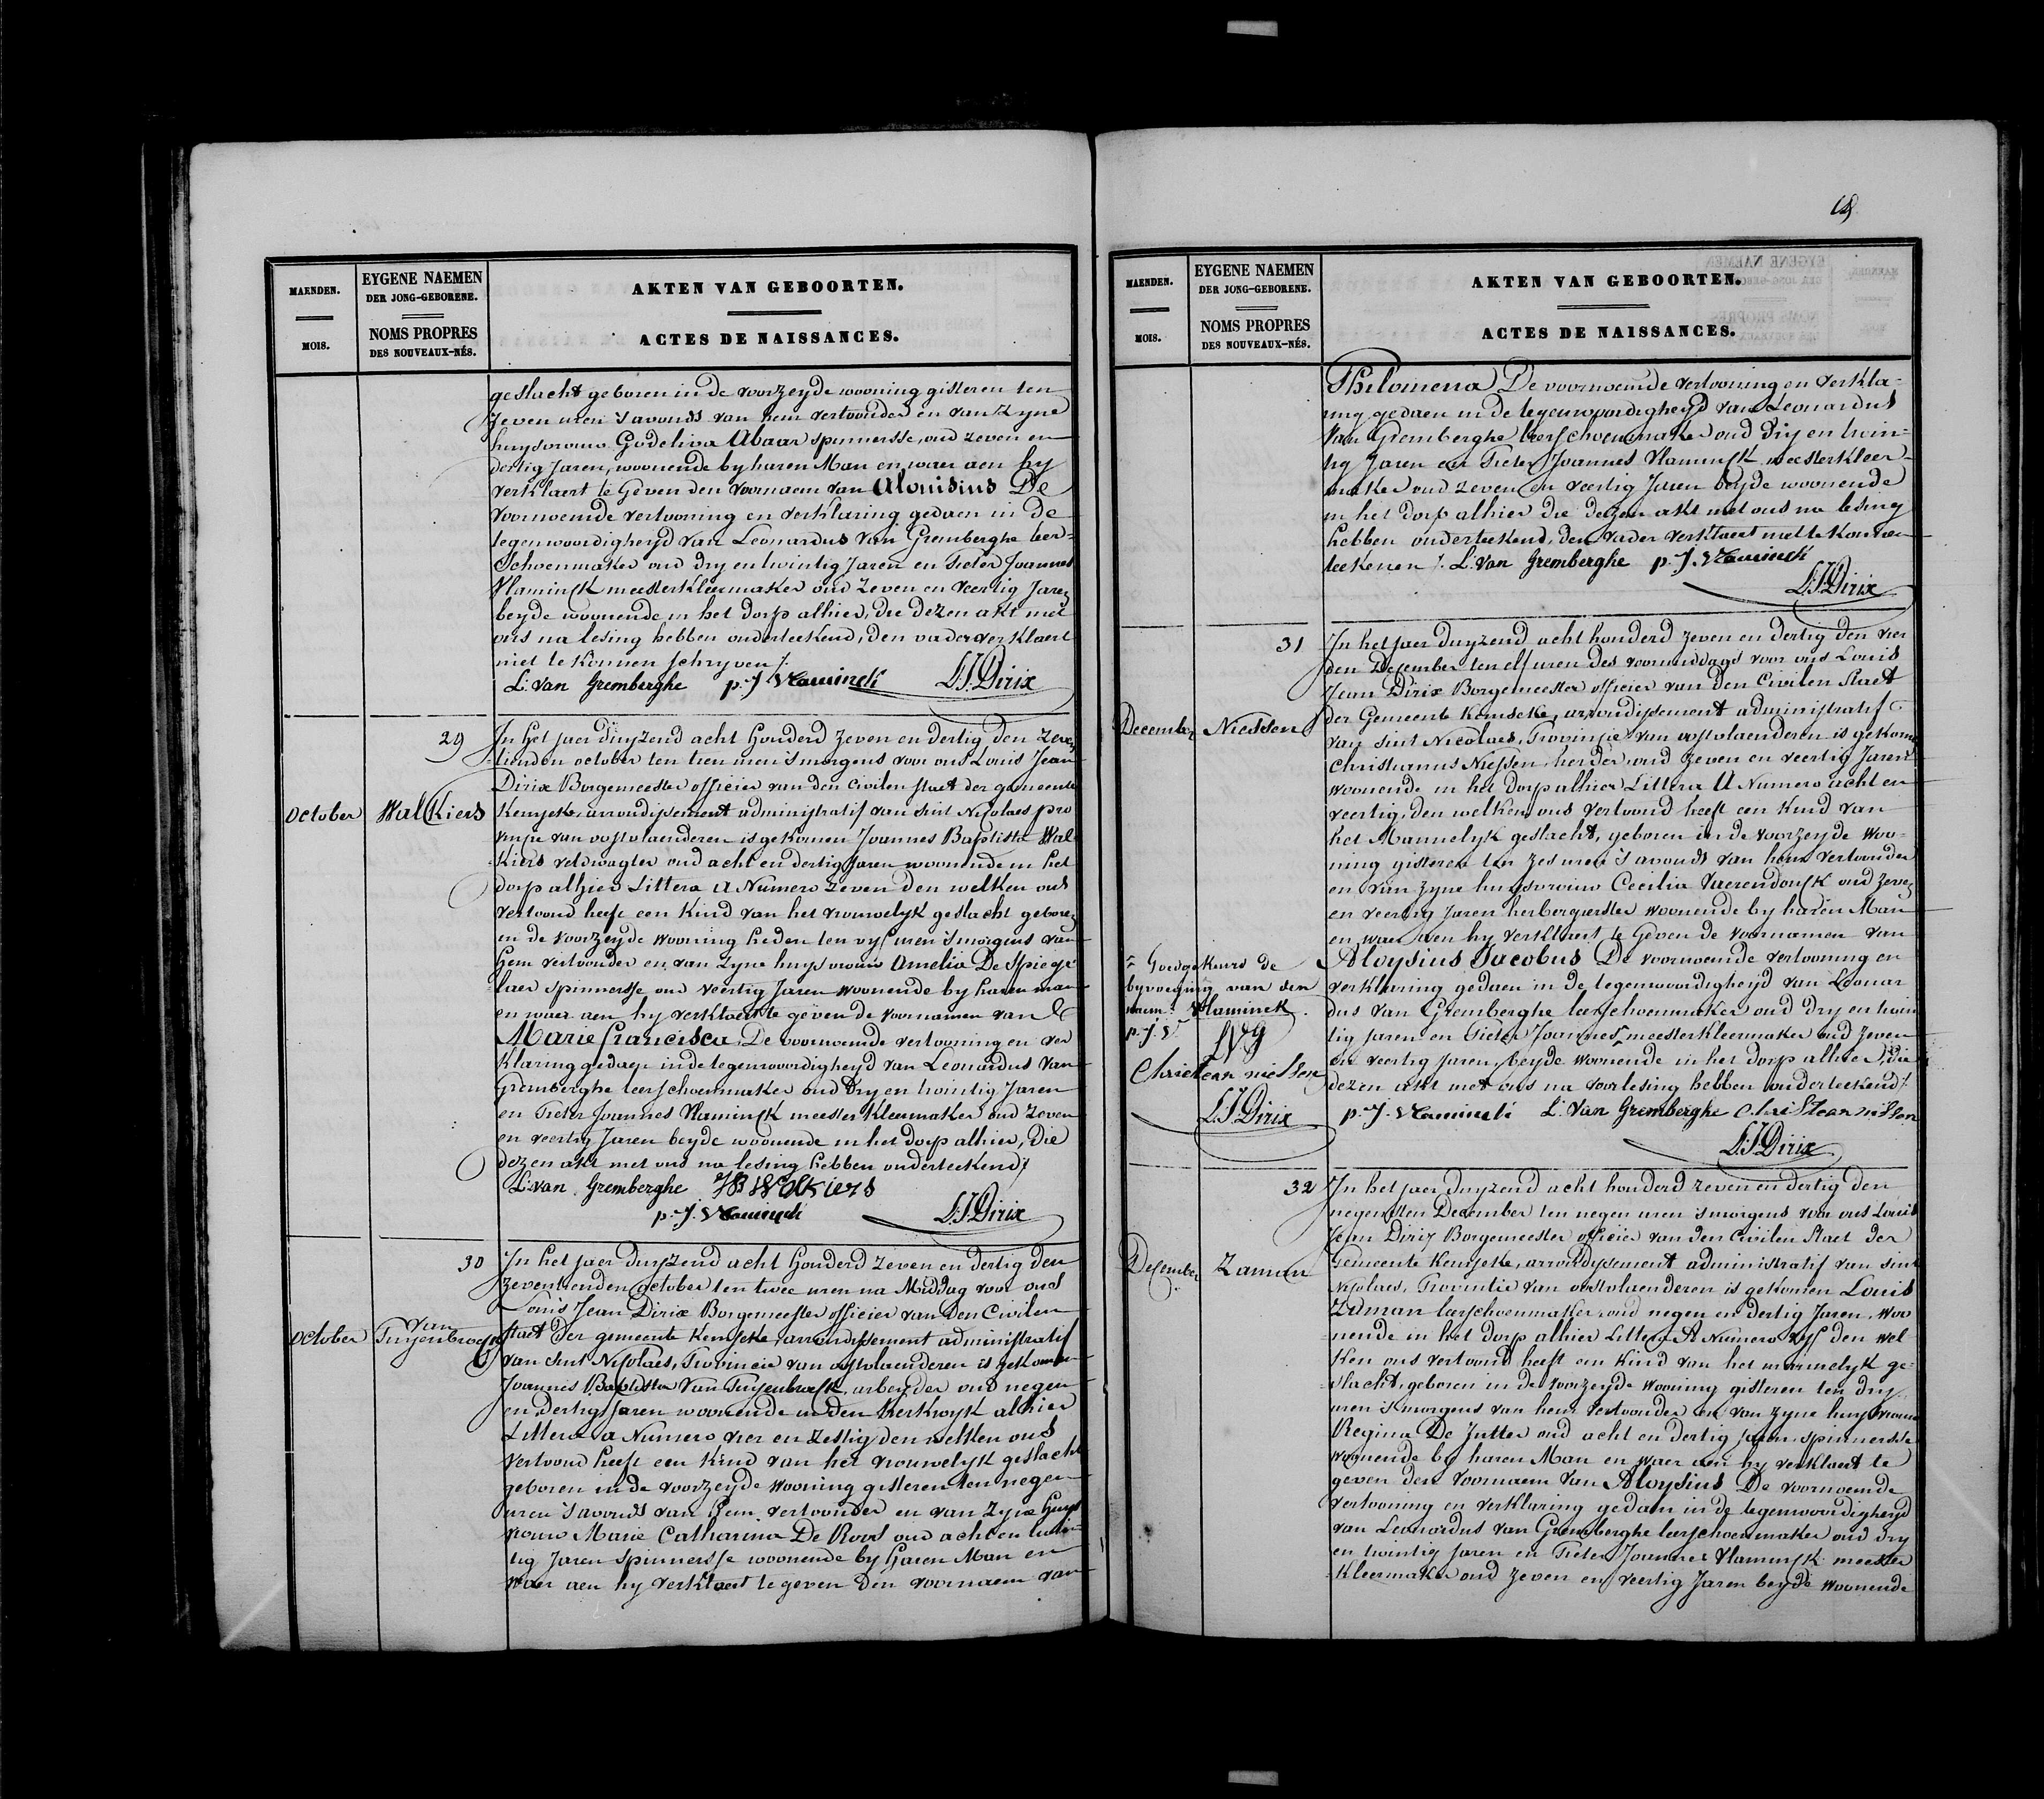 MAENDEN.
MOIS.
EYGENE NAEMEN
DER JONG-GEBORENE.
NOMS PROPRES
DES NOUVEAUX-NÉS.
AKTEN VAN GEBOORTEN.
ACTES DE NAISSANCES.
geslacht geboren in de voorzeyde wooning gisteren ten
zeven uren s'avonds van hem vertoonder en van zyne
huysvrouw Godeliva Abaar spinnersse, oud zeven en
dertig Jaren, woonende by haren Man en waer aen hy
verklaert te Geven den voornaem van Alouisius De
voornoemde vertooning en verklaring gedaen in de
tegenwoordigheyd van Leonardus van Gremberghe leer-
Schoenmaker oud dry en twintig Jaren en Pieter Joannes
Vlaminck meesterkleermaker oud zeven en veertig Jaren
beyde woonende in het dorp alhier, die dezen akt met
ons na lesing hebben onderteekend, den vader verklaert
niet te konnen schryven /.
L: Van Gremberghe p: J. Vlaminck L.J. Dirix
29
October
Walckiers
In het jaer duyzend acht Honderd zeven en dertig den zeven
tienden october ten tien uren s'morgens voor ons Louis Jean
Dirix Borgemeester officier van den civilen staet der gemeente
Kemseke, arroudissement administratif van sint Nicolaes pro
vinjie van oostvlaenderen is gekomen Joannes Baptista Wal-
kiers veldwagter oud acht en dertig Jaren woonende in het
dorp alhier Littera A Numero zeven den welken ons
vertoond heeft een kind van het vrouwelyk geslacht geboren
in de voorzeyde wooning heden ten vyf uren s'morgens van
hem vertoonder en van zyne huysvrouw Amelia De Spiege
laer spinnersse oud veertig Jaren woonende by haren man
en waer aen hy verklaert te geven de voornamen van
Marie Francisca, De voornoemde vertooning en ver
klaring gedaen in de tegenwoordigheyd van Leonardus Van
Gremberghe leerschoenmaker oud Dry en twintig Jaren
en Pieter Joannes Vlaminck meester Kleermaker oud zeven
en veertig Jaren beyde woonende in het dorp alhier, Die
dezen akt met ons na lesing hebben onderteekend /
L: van Gremberghe JB Walkiers
p: J. Vlaminck L.J. Dirix
30
October
van
Puyenbroeck
In het jaer duyzend acht Honderd zeven en dertig den
zeventienden october ten twee uren na Middag voor ons
Louis Jean Dirix Borgemeester officier van Den Civilen
staet Der gemeente Kemseke, arroudissement administratif
van sint Nicolaes, Provincie van oostvlaenderen is gekomen
Joannes Baptista Van Puyenbroeck, arbeyder oud negen
en dertig Jaren woonende in den Kerkwyk alhier
Littera a Numero vier en zestig den welken ons
vertoond heeft een kind van het vrouwelyk geslacht
geboren in de voorzeyde wooning gisteren ten negen
uren s'avonds van hem vertoonder en van zyne huys
vrouw Marie Catharina De Roos oud acht en twin-
tig Jaren spinnersse woonende by haren Man en
waer aen hy verklaert te geven den voornaem van
MAENDEN.
MOIS.
EYGENE NAEMEN
DER JONG-GEBORENE.
NOMS PROPRES
DES NOUVEAUX-NÉS.
AKTEN VAN GEBOORTEN.
ACTES DE NAISSANCES.
Philomena De voornoemde vertooning en verkla-
ring gedaen in de tegenwoordigheyd van Leonardus
Van Gremberghe leerschoenmaker oud dry en twin-
tig Jaren en Pieter Joannes Vlaminck meesterkleer-
maker oud zeven en veertig Jaren beyde woonende
in het dorp alhier die dezen akt met ons na lesing
hebben onderteekend, den vader verklaert niet te konnen
teekenen /. L: Van Gremberghe p: J. Vlaminck
L.J. Dirix
31
December
Niessen
In het jaer duyzend acht honderd zeven en dertig den vier
den December ten elf uren des voormiddags voor ons Louis
Jean Dirix Borgemeester officier van den Civilen staet
der Gemeente Kemseke, arroudissement administratif
van sint Nicolaes, Provinjie van oostvlaenderen is gekomen
Christianus Niessen, herder, oud zeven en veertig Jaren
woonende in het dorp alhier Littera A Numero acht en
veertig, den welken ons vertoond heeft een kind van
het Mannelyk geslacht, geboren in de voorzeyde woo-
ning gisteren ten zes uren s'avonds van hem vertoonder
en van zyne huysvrouw Cecilia Vaerendonck oud zeven
en veertig Jaren herbergierster woonende by haren Man
en waer aen hy verklaert te Geven de voornamen van
Aloysius Jacobus De voornoemde vertooning en
verklaring gedaen in de tegenwoordigheyd van Leonar
dus van Gremberghe leerschoenmaker oud dry en twin
tig Jaren en Pieter Joannes meesterkleermaker oud zeven
en veertig Jaren, beyde woonende in het dorp alhier, die
dezen akt met ons na voorlesing hebben onderteekend /.
p: J. Vlaminck L: Van Gremberghe Christean niessen
L.J. Dirix
Goedgekeurd de
byvoeging van den
naem Vlaminck
p: J. V LVG
Christean niessen
L.J. Dirix
32
December
Zaman
In het jaer duyzend acht honderd zeven en dertig den
negensten December ten negen uren s'morgens voor ons Louis
Jean Dirix Borgemeester officier van den Civilen Staet der
Gemeente Kemseke, arroudyssement administratif van sint
Nicolaes, Provintie van oostvlaenderen is gekomen Louis
Zaman leerschoenmaker oud negen en dertig Jaren, woo
nende in het dorp alhier Littera A Numero vyf den wel
ken ons vertoond heeft een kind van het mannelyk ge-
slacht, geboren in de voorzeyde wooning gisteren ten dry
uren s'morgens van hem vertoonder en van zyne huysvrouw
Regina De Jutter oud acht en dertig Jaren spinnersse
woonende by haren Man en waer aen hy verklaert te
geven den voornaem van Aloysius De voornoemde
vertooning en verklaring gedaen in de tegenwoordigheyd
van Leonardus van Gremberghe leerschoenmaker oud dry
en twintig Jaren en Pieter Joannes Vlaminck meester
kleermaker oud zeven en veertig Jaren beyde woonende